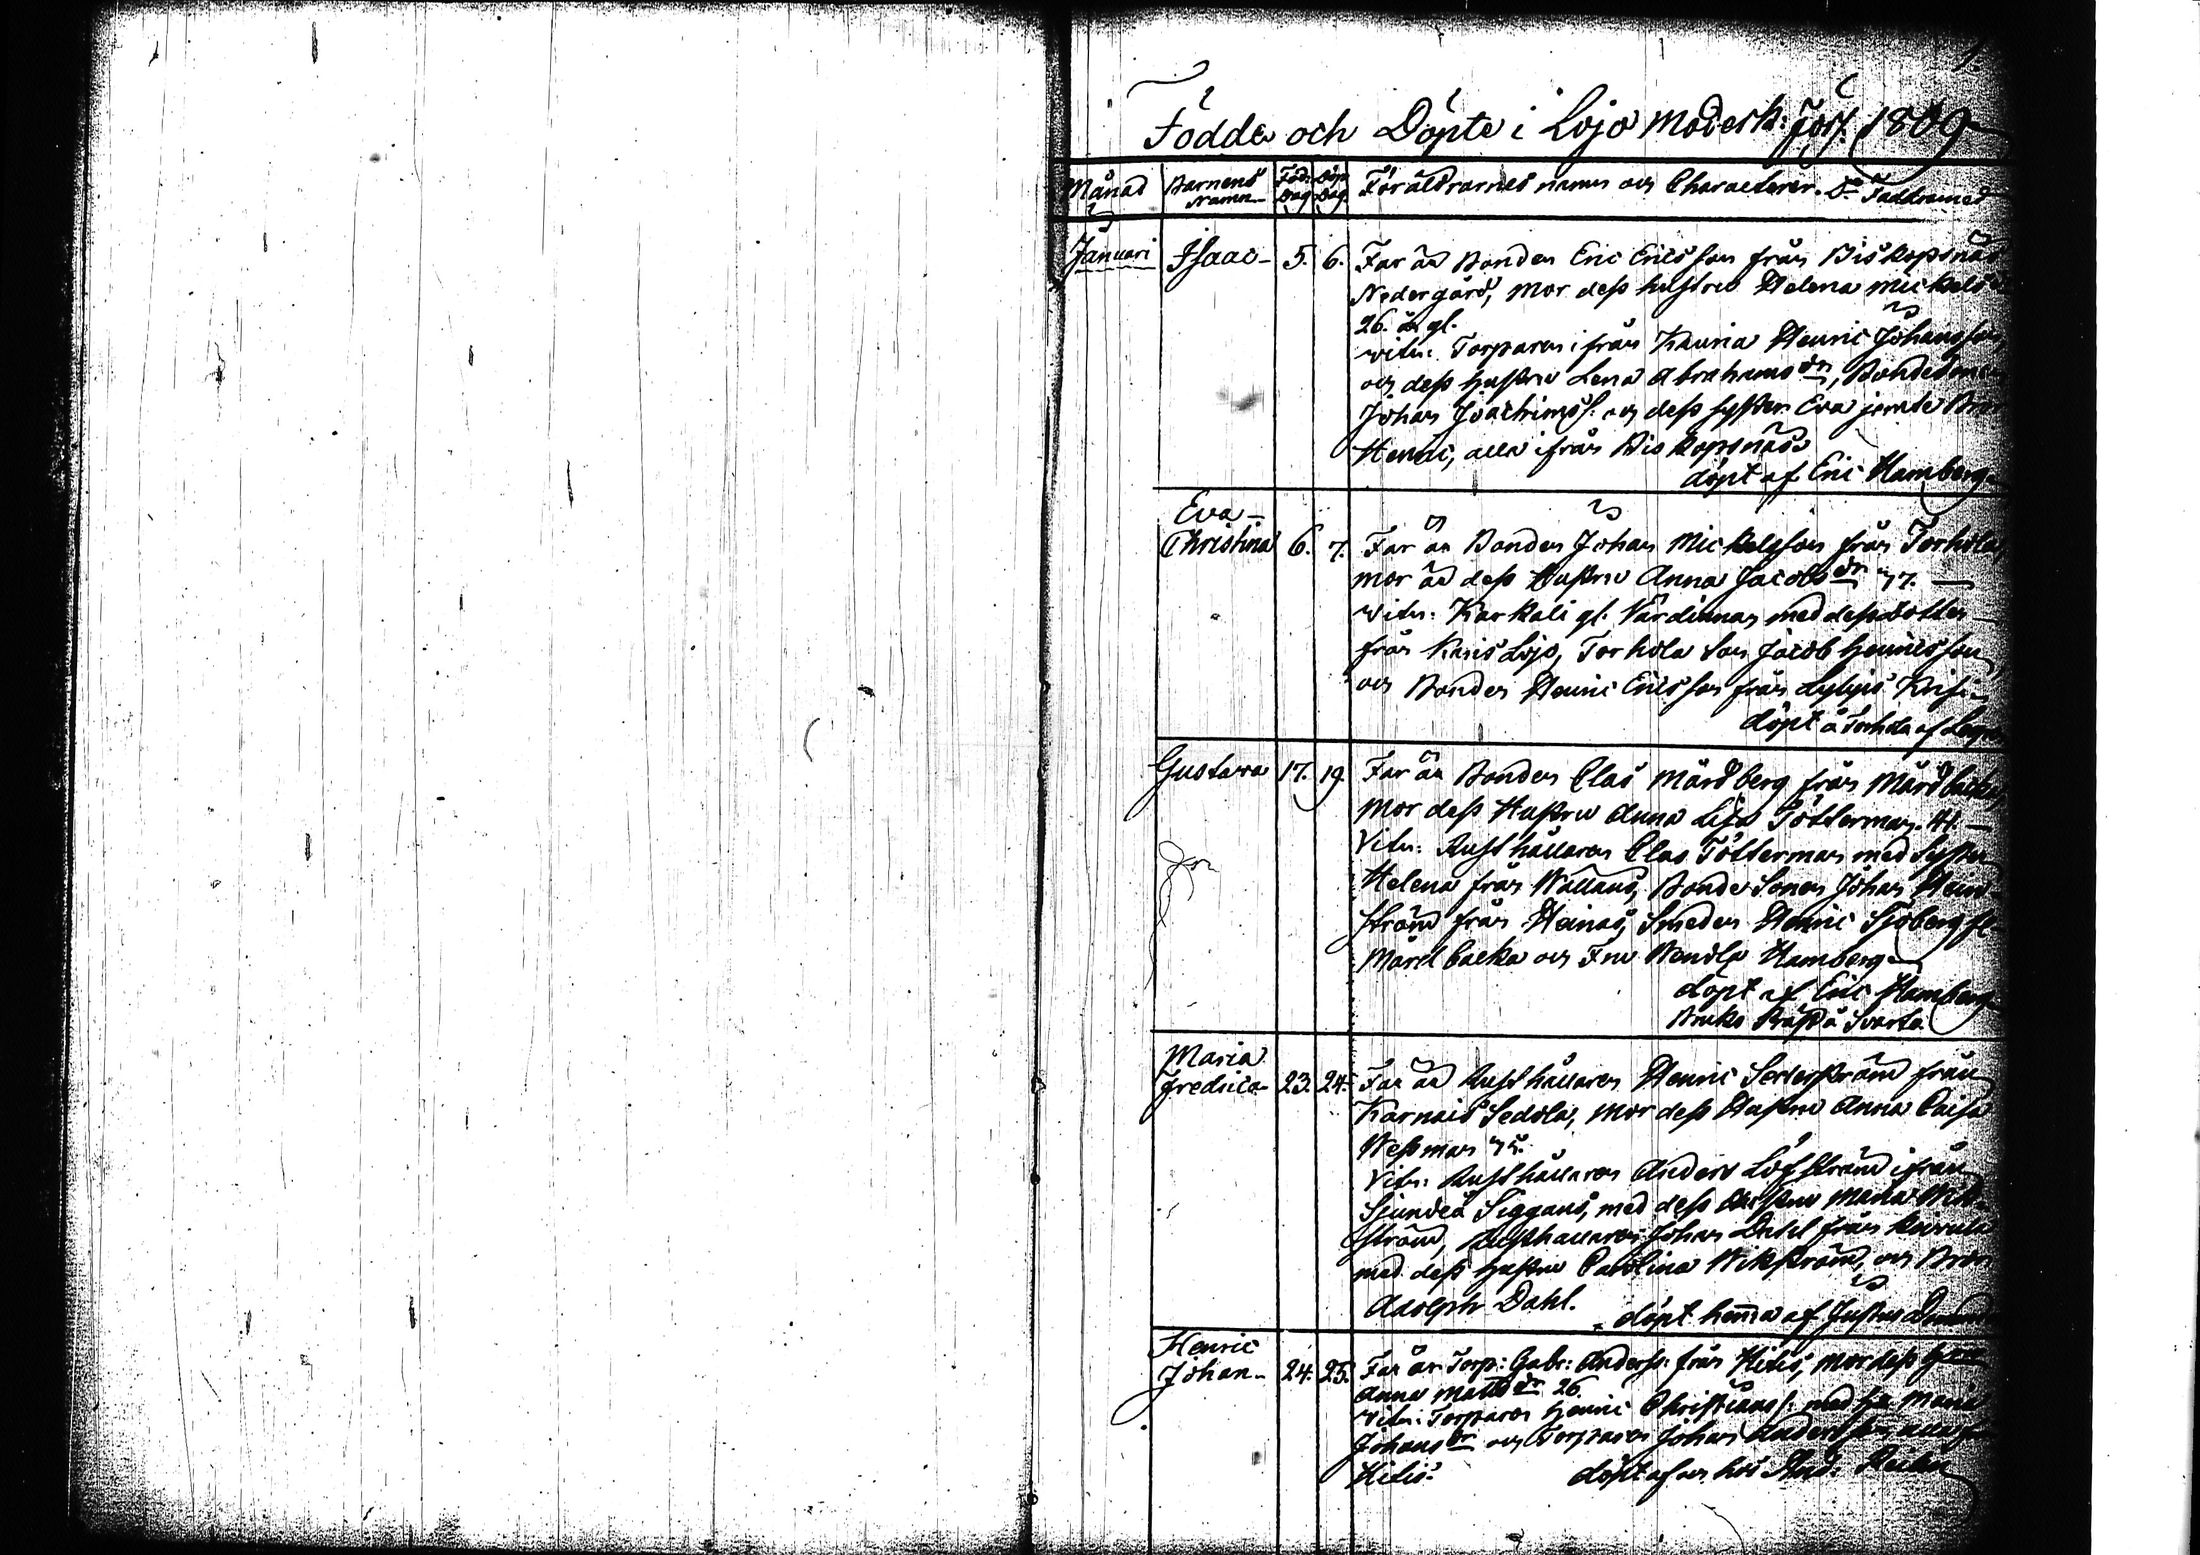 1.
Födde och Döpte i Lojo Moderk: förs. 1809
Månad Barnens Namn Föd: Dag Döp Dag Föräldrarnes namn och Characterer. Do Faddrarnes
Januari Isaac 5. 6. Far är Bonden Eric Ericsson från Biskopsnäs
Nedergård, Mor dess hustru Helena Mickels
26. år gl.
witn: Torparen ifrån Henric Johansson
och dess Hustru Lena Abrahamsdr,
Johan Joachimss: och dess syster Eva jemte
Henric, alla ifrån Biskopsnäs
döpt af Eric Hamberg
Eva
Christina 6. 7. Far är Bonden Johan Mickelsson från Torhola
Mor är dess Hustru Anna Jacobsdr 47.
witn: Karkali gl. Värdinnan med dess dotter
från Karis Lojo, Torhola Son Jacob Henricsson
och Bonden Henric Ericsson från Lylyis
döpt å Torhola af
Gustava 17. 19. Far är Bonden Clas Mårdberg från Mårdbacka,
Mor dess Hustru Anna Lisa Töttermar. 41.
Vitn: Rusthållaren Clas Tötterman med Syster
Helena från Wållans, Bonde Sonen Johan
ström från Heinäs, Smeden Henric Sjöberg fr
Mårdbacka och Fru Wendla Hamberg
döpt af Eric Hamberg
Bruks Präst å Svartå
Maria
Fredrica 23. 24. Far är Rusthållaren Henric Söderström från
Karnais Sedola, Mor dess Hustru Anna Caisa
Wessman 45.
Vitn: Rusthållaren Anders Löfström ifrån
Sjundeå Siggans, med dess Hustru Maria Wik
ström, Rusthållaren Johan Dahl från
med dess Hustru Carolina Wikström, och
Adolph Dahl.
döpt hemma af
Henric
Johan 24. 25. Far är Torp: Gabr: Anderss: från Hitis, Mor dess
Anna Mattsdr 26.
Witn: Torparen Henric Christianss: med Hu Maria
Johansdr och Torparen Johan Andersson alla fr
Hitis. döpt af